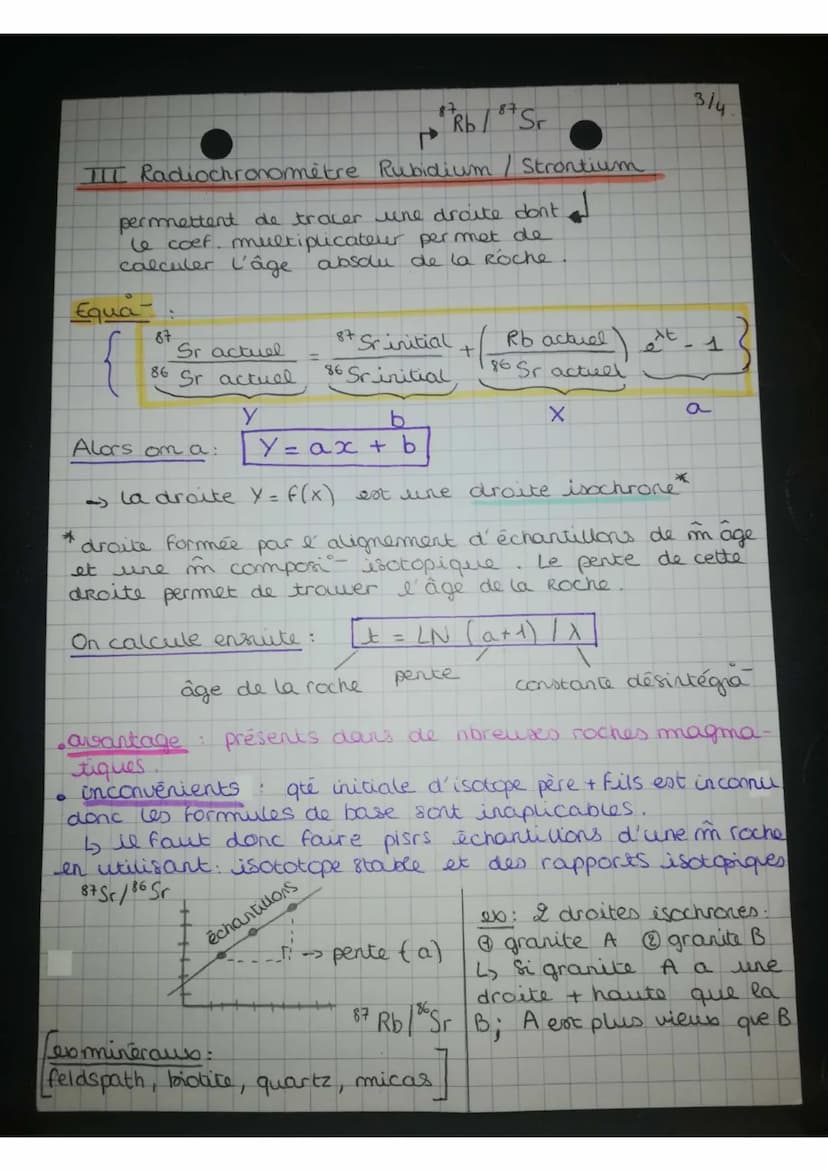 3/4
⁸⁷Rb / ⁸⁷Sr
III Radiochronomètre Rubidium / Strontium
permettent de tracer une droite dont
le coef. multiplicateur permet de
calculer l'âge absolu de la Roche.
Equa° :
{ ⁸⁷Sr actuel / ⁸⁶Sr actuel = ⁸⁷Sr initial / ⁸⁶Sr initial + ( Rb actuel / ⁸⁶Sr actuel ) e^λt - 1 }
Y b X a
Alors on a : Y = ax + b
→ la droite Y = f(x) est une droite isochrone*
* droite formée par l'alignement d'échantillons de m̂ âge
et une m̂ composi° isotopique. Le pente de cette
droite permet de trouver l'âge de la Roche.
On calcule ensuite : t = LN (a+1) / λ
âge de la roche pente constante désintégra°
• avantage : présents dans de nbreuses roches magma-
tiques.
• inconvénients : qté initiale d'isotope père + fils est inconnu
donc les formules de base sont inaplicables.
↳ il faut donc faire plsrs échantillons d'une m̂ roche
en utilisant : isototope stable et des rapports isotopiques
⁸⁷Sr/⁸⁶Sr
échantillons
→ pente (a)
⁸⁷Rb/⁸⁶Sr
ex : 2 droites isochrones :
① granite A ② granite B
↳ Si granite A a une
droite + haute que la
B ; A est plus vieux que B
[ex minéraux :
feldspath, biotite, quartz, micas]